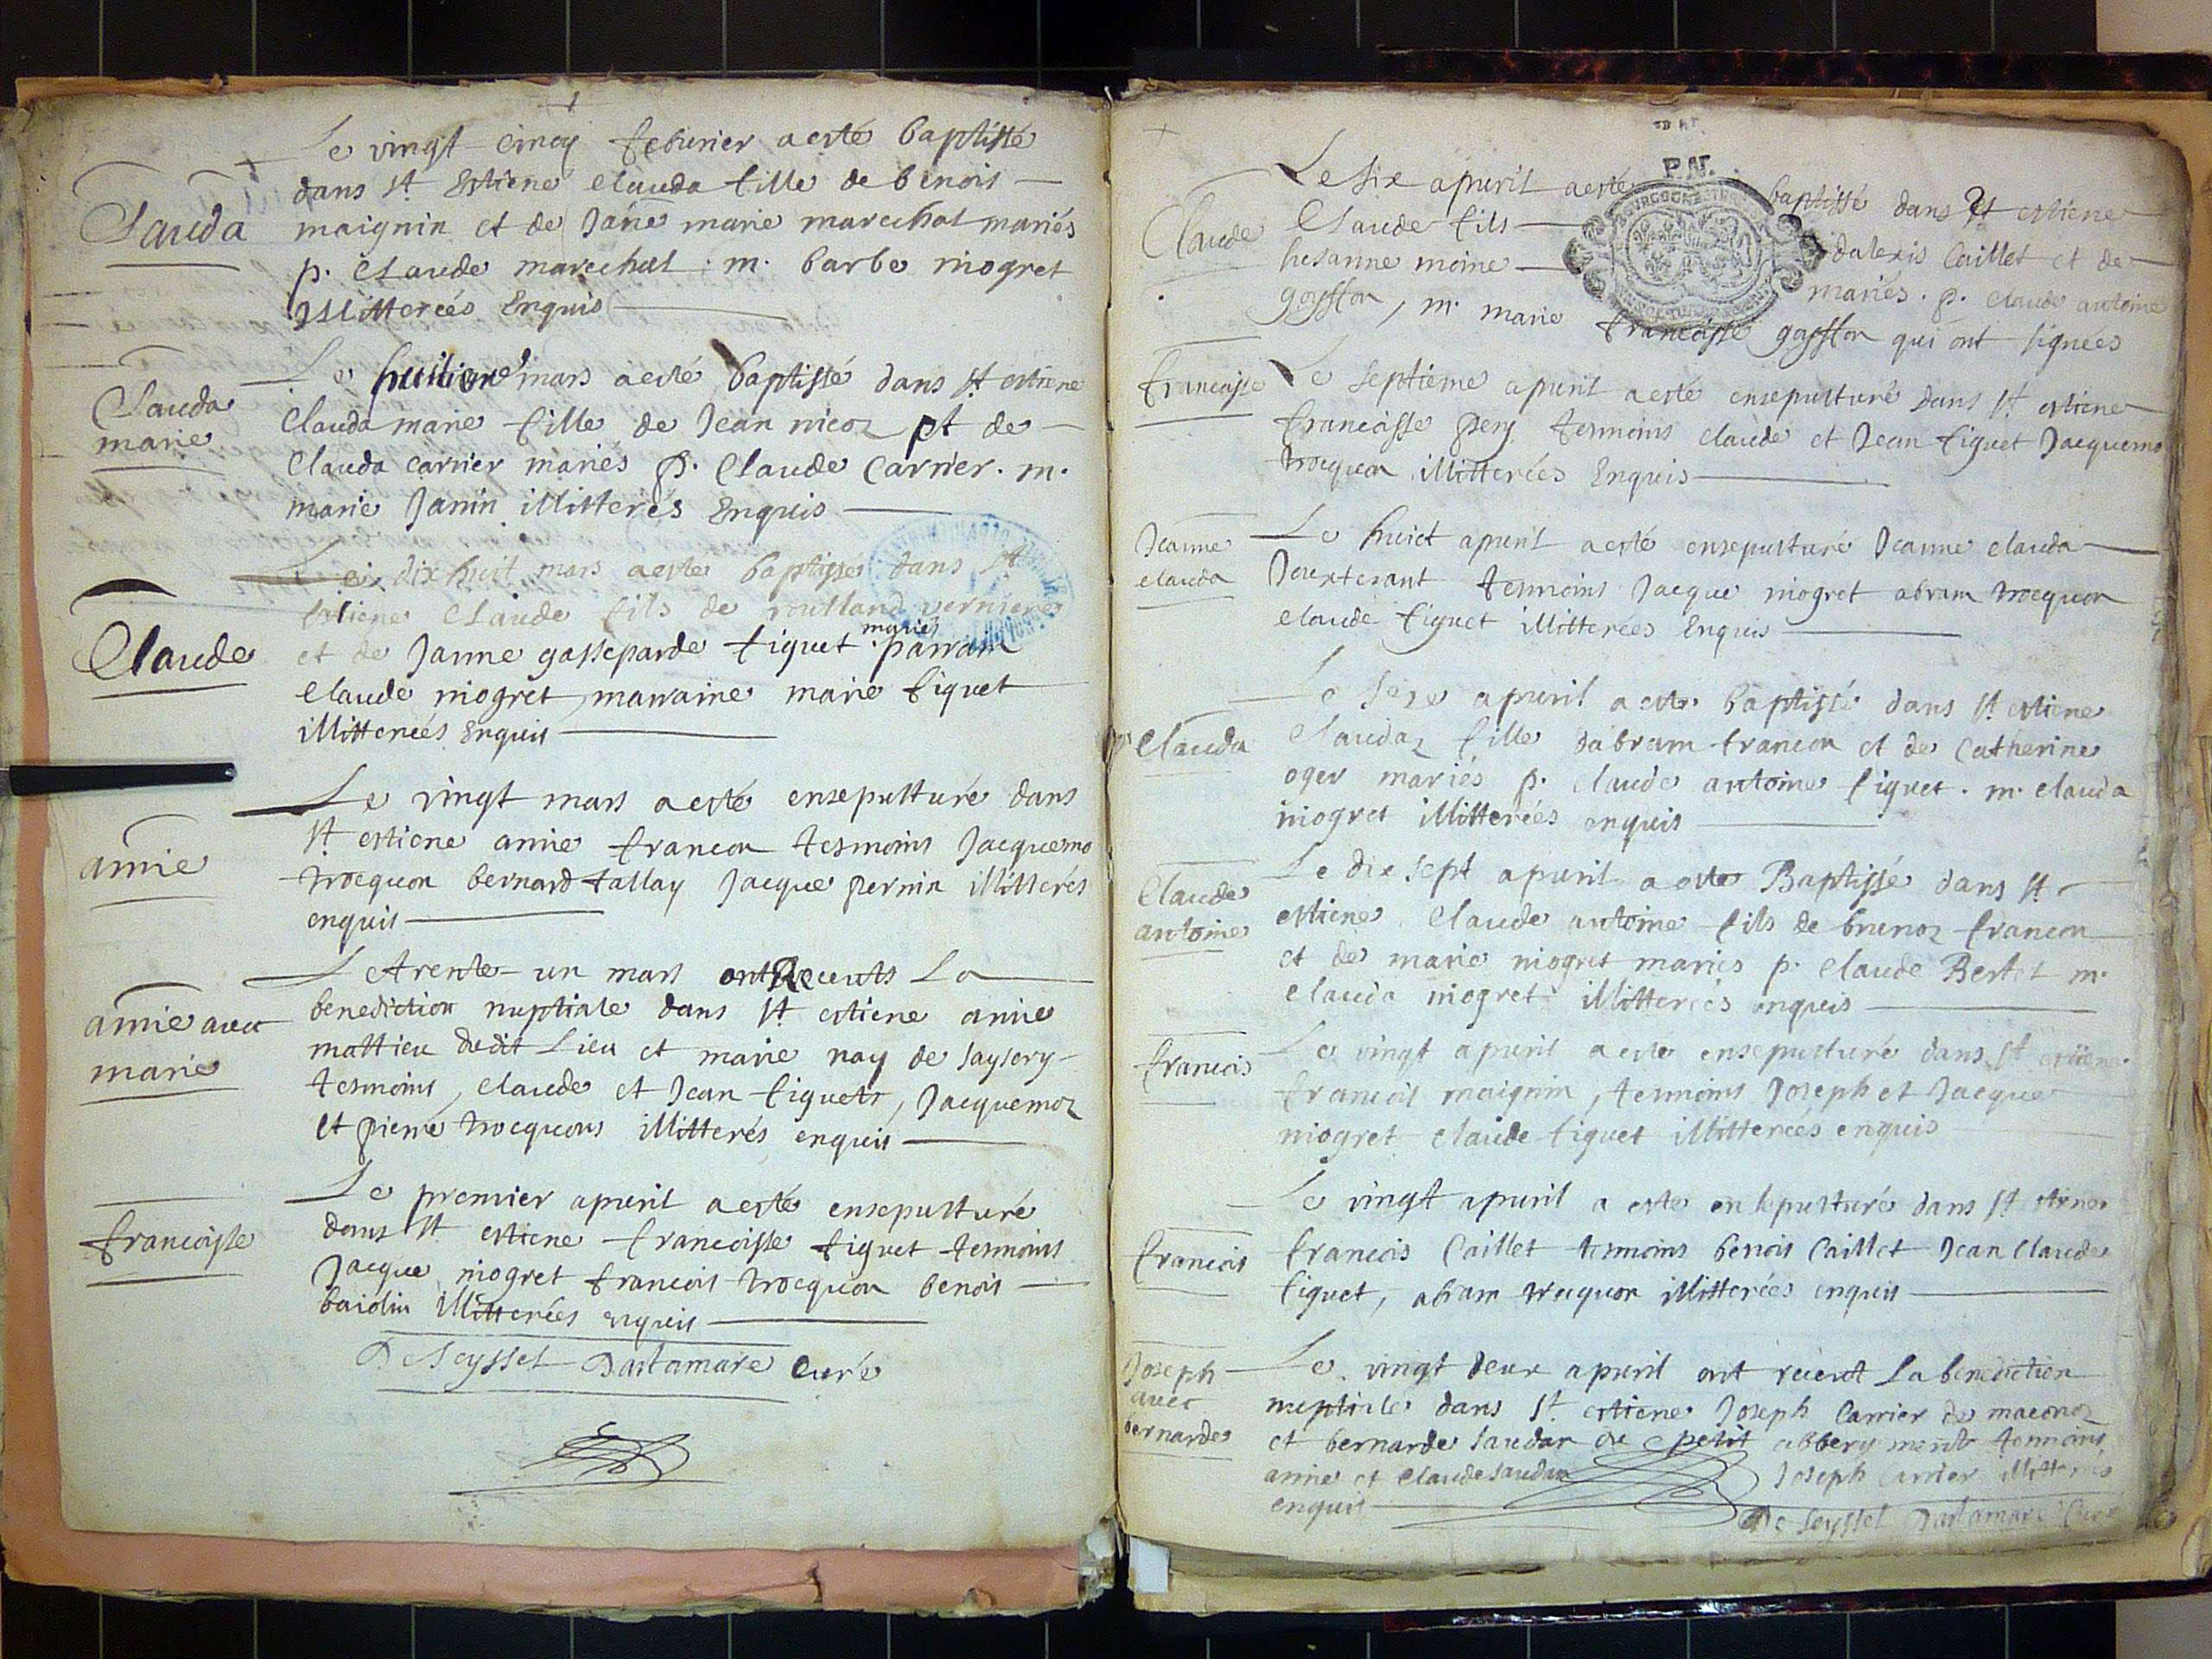 Le vingt-cincq febvrier a esté baptissé
dans st Estiene Clauda fille de benois
Clauda
maignin et de Janne marie marechal mariés
p. Claude marechal. m. barbe niogret
Illitterées Enquis
Le huitiene mars a esté baptissé dans st estiene
Clauda
marie
Clauda marie fille de Jean nicoz et de
Clauda carrier mariés p. Claude Carrier. m.
marie Janin illitterés Enquis
Le dix huit mars a este baptissé dans st
Estiene Claude fils de roulland verniere
mariés
Claude
et de Janne gasseparde figuet parrain
Claude niogret, marraine marie figuet
illitterées Enquis
Le vingt mars a esté ensepulturé dans
st estiene amie francon tesmoins Jacquemo
amie
trocquon bernard tallay Jacque pernin illitterés
enquis
Le trente-un mars ont Receuts La
benediction nuptiale dans st estiene amie
amie avec
marie
mattieu dudit Lieu et marie nay de saysery
tesmoins, claude et Jean figuets, Jacquemoz
et pierre trocquons illitterés enquis
Le premier apuril a esté ensepulturé
dans st estiene francoisse figuet tesmoins
francoisse
Jacque niogret francois trocquon benois
baidin illitterées enquis
De Seyssel Dartamare Curé
P.N.
Le six apuril a esté baptissé dans st estiene
Claude
Claude fils dalexis Caillet et de
susanne moine mariés. p. claude antoine
goysson, m. marie francoisse gaysson qui ont signées
francoisse
Le septième apuril a esté ensepulturé dans st estiene
francoisse pery tesmoins claude et Jean figuet Jacquemo
trocquon illitterées Enquis
Jeanne
clauda
Le huict apuril a esté ensepulturé Jeanne clauda
tesmoins Jacque niogret abram trocquon
claude figuet illitterées Enquis
Le seze apuril a este baptissé dans st estiene
Clauda
Claudaz fille dabram francon et de Catherine
oger mariés p. claude antoine figuet. m. clauda
niogret illitterées enquis
Claude
antoine
Le dix sept apuril a este Baptissé dans st
estiene Claude antoine fils de brunoz francon
et de marie niogret maries p. Claude Bertet m.
Clauda niogret illitterées enquis
francois
Le vingt apuril a este ensepulturé dans st estiene
francois maignin, tesmoins Joseph et Jacque
niogret claude figuet illitterées enquis
Le vingt apuril a este ensepulturé dans st
francois
francois Caillet tesmoins benois Caillet Jean Claude
figuet, abram trocquon illitterées enquis
Joseph
avec
bernarde
Le vingt deux apuril ont receut La benediction
nuptiale dans st estiene Joseph Carrier de maconoz
et bernarde saudan du petit abbergment tesmoins
amie et Claude saudan Joseph Carrier illitterées
enquis
De Seyssel Dartamare Curé